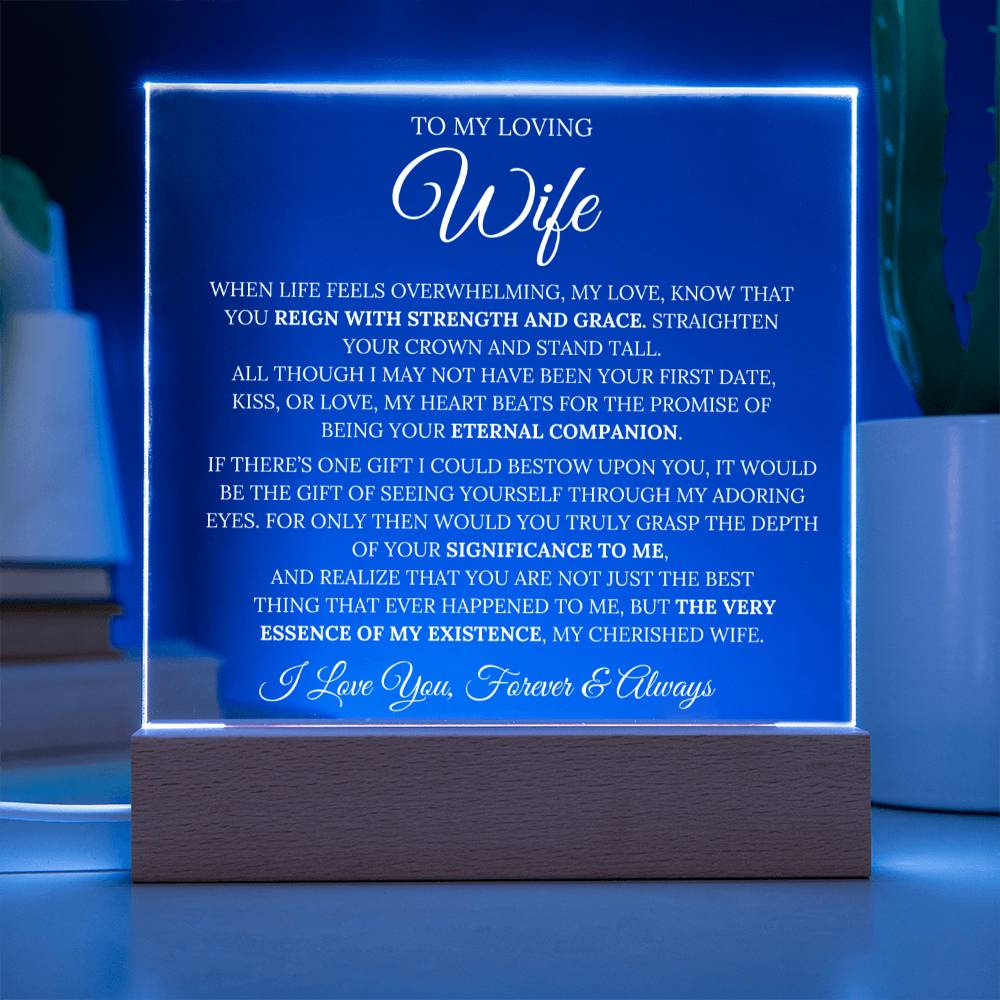 TO MY LOVING
Wife
WHEN LIFE FEELS OVERWHELMING, MY LOVE, KNOW THAT
YOU REIGN WITH STRENGTH AND GRACE. STRAIGHTEN
YOUR CROWN AND STAND TALL.
ALL THOUGH I MAY NOT HAVE BEEN YOUR FIRST DATE,
KISS, OR LOVE, MY HEART BEATS FOR THE PROMISE OF
BEING YOUR ETERNAL COMPANION.
IF THERE'S ONE GIFT I COULD BESTOW UPON YOU, IT WOULD
BE THE GIFT OF SEEING YOURSELF THROUGH MY ADORING
EYES. FOR ONLY THEN WOULD YOU TRULY GRASP THE DEPTH
OF YOUR SIGNIFICANCE TO ME,
AND REALIZE THAT YOU ARE NOT JUST THE BEST
THING THAT EVER HAPPENED TO ME, BUT THE VERY
ESSENCE OF MY EXISTENCE, MY CHERISHED WIFE.
I Love You, Forever & Always